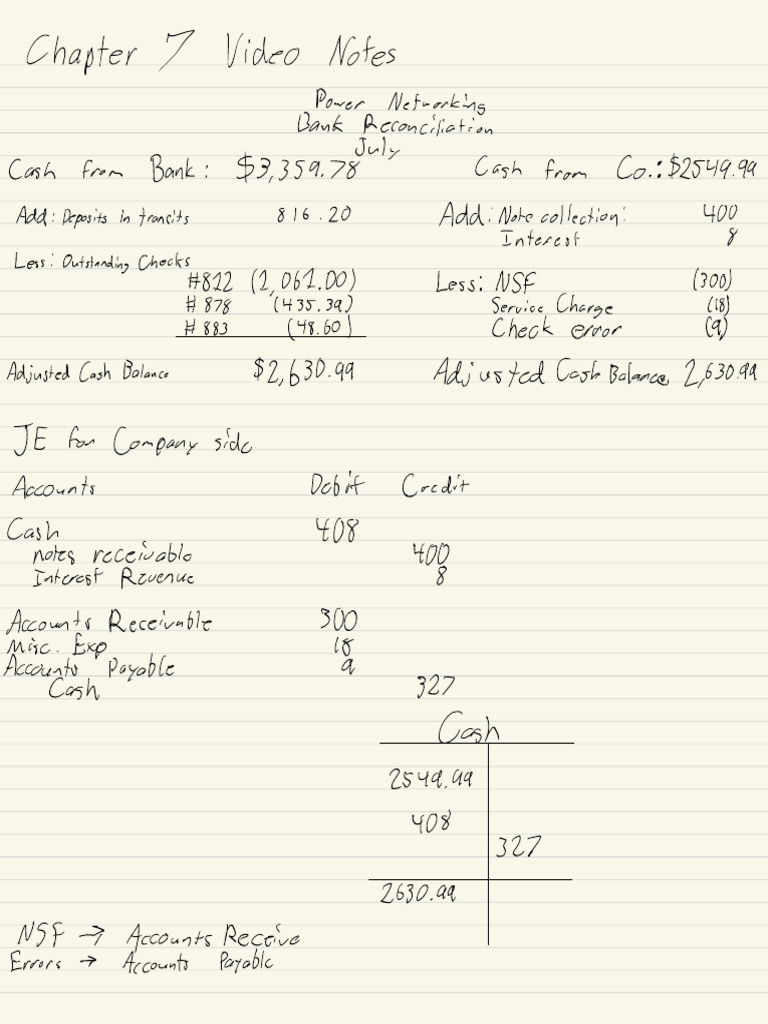 Chapter 7 Video Notes
Power Networking
Bank Reconciliation
July
Cash from Bank: $3,359.78 Cash from Co.: $2549.99
Add: Deposits in transits 816.20 Add: Note collection: 400
Interest 8
Less: Outstanding Checks
#822 (1,061.00) Less: NSF (300)
#878 (435.39) Service Charge (18)
#883 (48.60) Check error (9)
Adjusted Cash Balance $2,630.99 Adjusted Cash Balance 2,630.99
JE for Company side
Accounts Debit Credit
Cash 408
notes receivable 400
Interest Revenue 8
Accounts Receivable 300
Misc. Exp 18
Accounts Payable 9
Cash 327
Cash
2549.99
408
327
2630.99
NSF → Accounts Receive
Errors → Accounts Payable